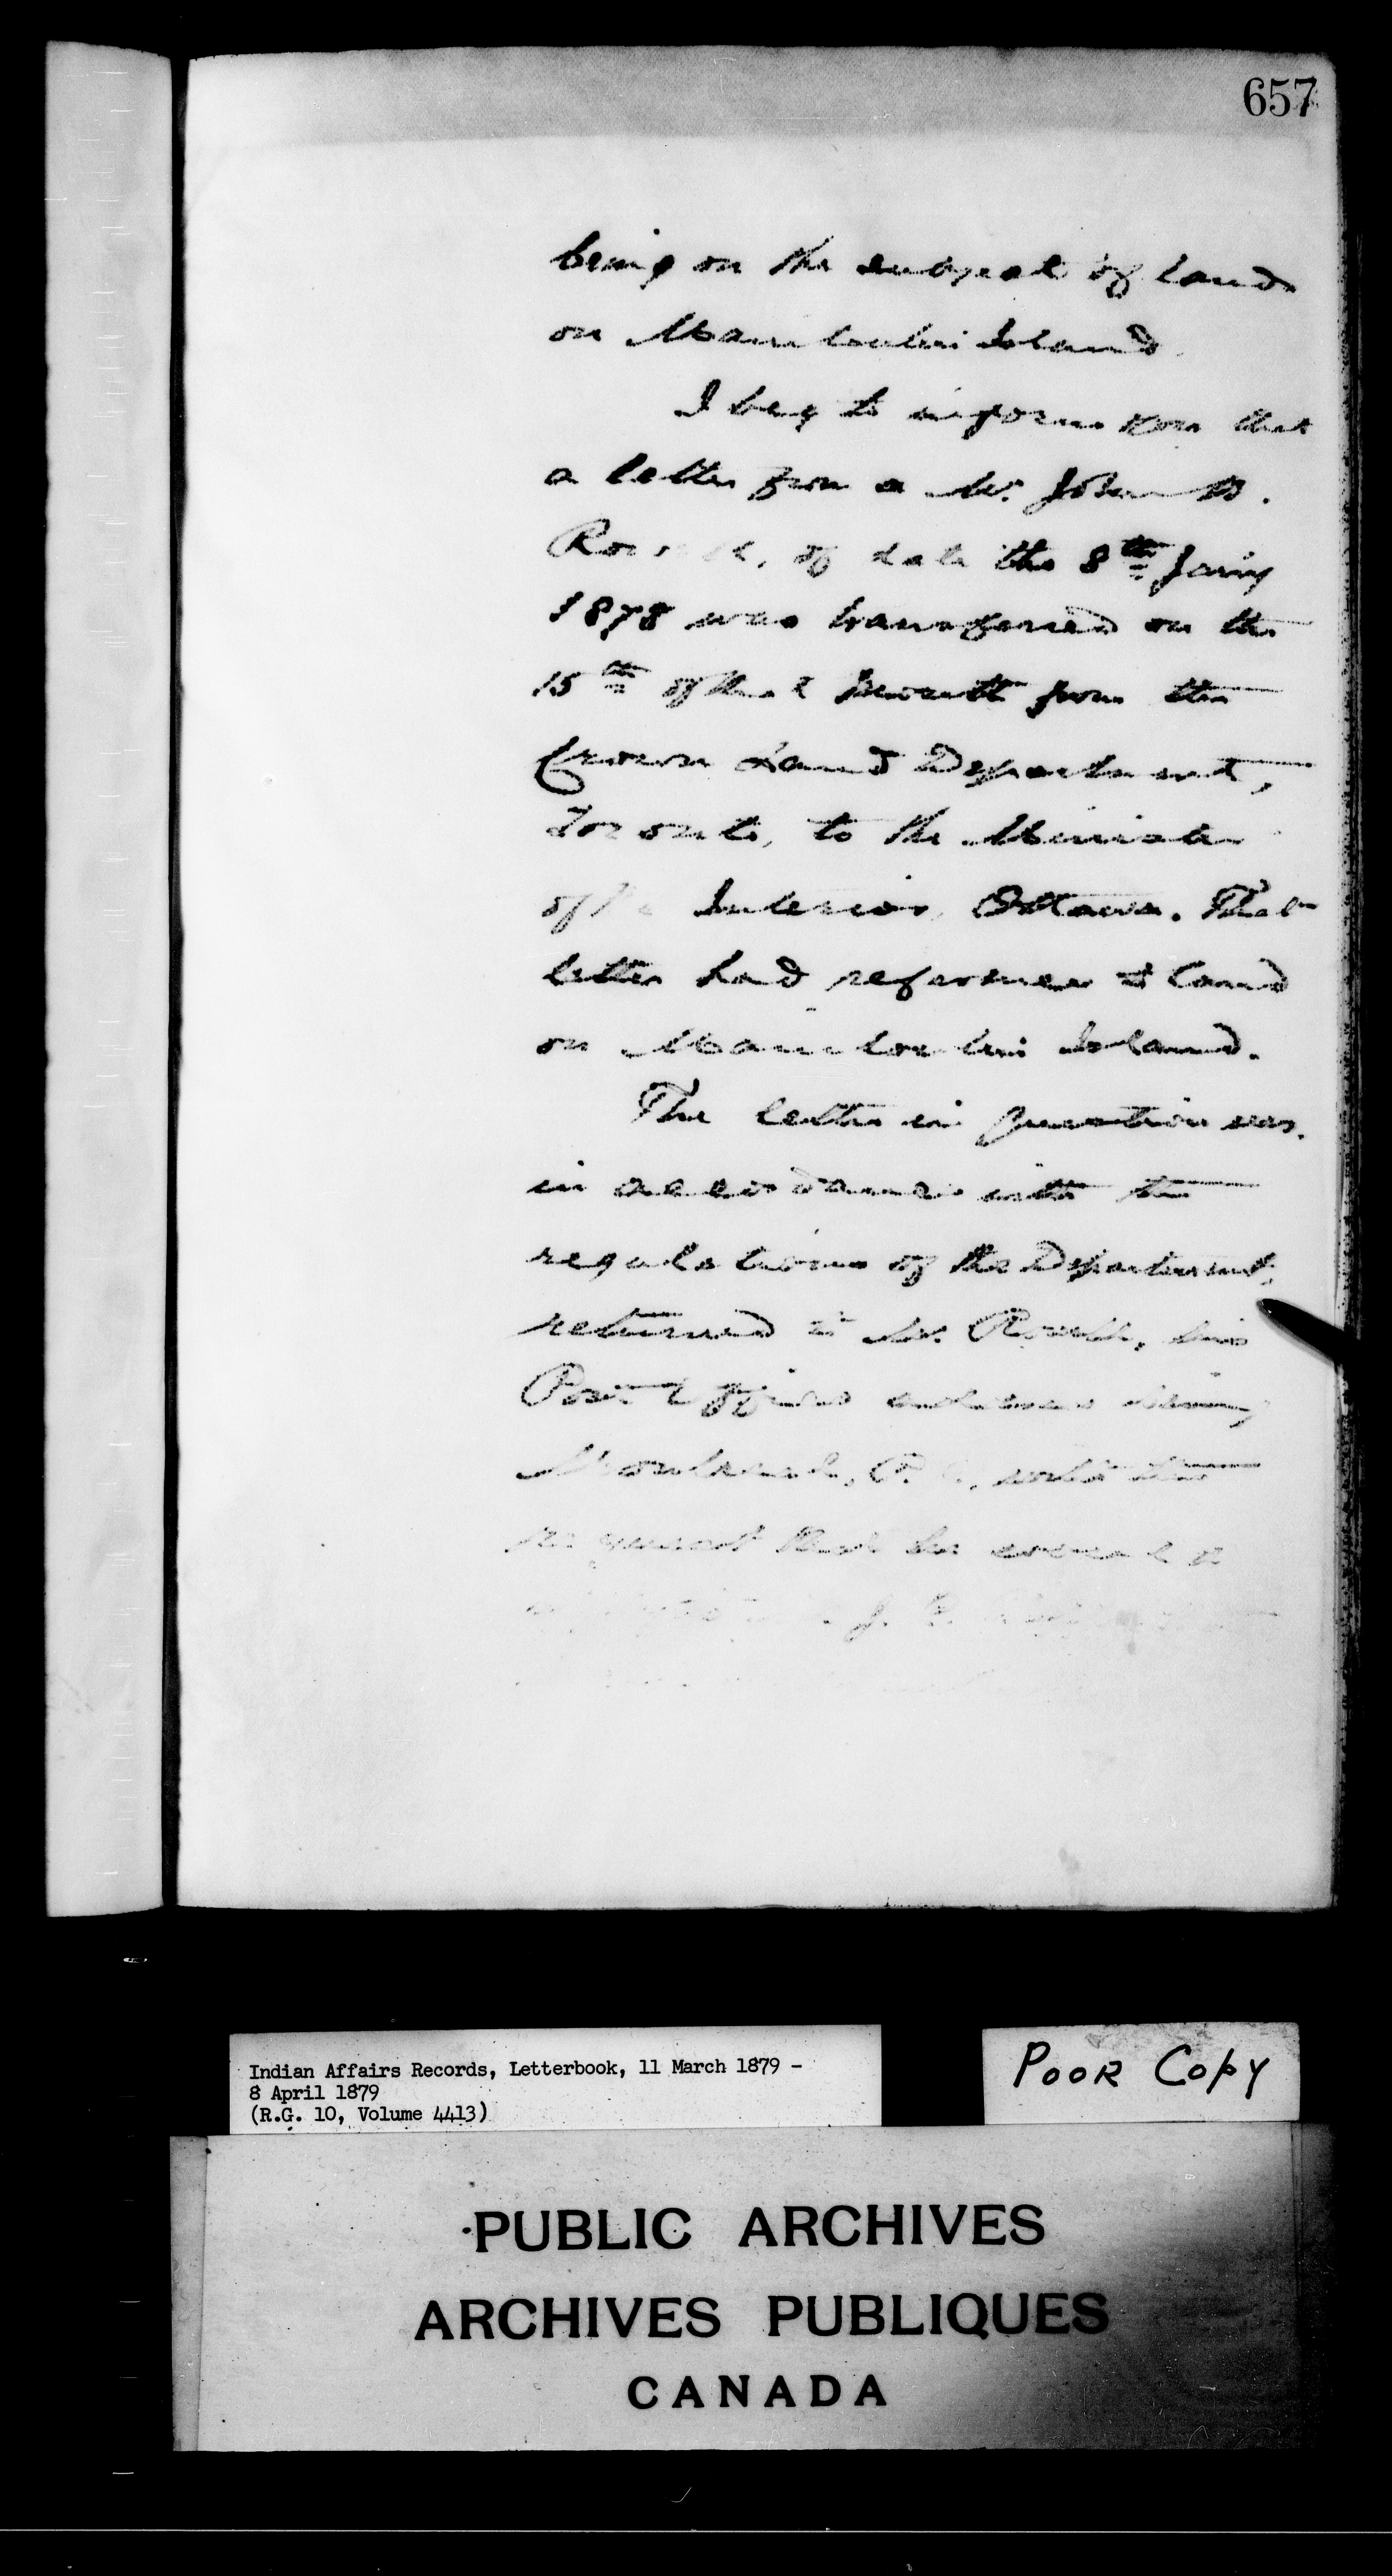 657
being on the subject of land
on Manitoulin Island
I beg to inform you that
a letter from a Mr. John B.
of date the 8th Jany
1878 was transferred on the
15th of that month from the
Crown Land Department,
Toronto, to the Minister
of the Interior, Ottawa. That
letter had reference to land
on Manitoulin Island.
The letter in question was
in accordance with the
regulations of the Department,
returned to Mr. his
Post Office address being
P. with the
request that he would
J.
Indian Affairs Records, Letterbook, 11 March 1879 -
8 April 1879
(R.G. 10, Volume 4413)
POOR COPY
PUBLIC ARCHIVES
ARCHIVES PUBLIQUES
CANADA